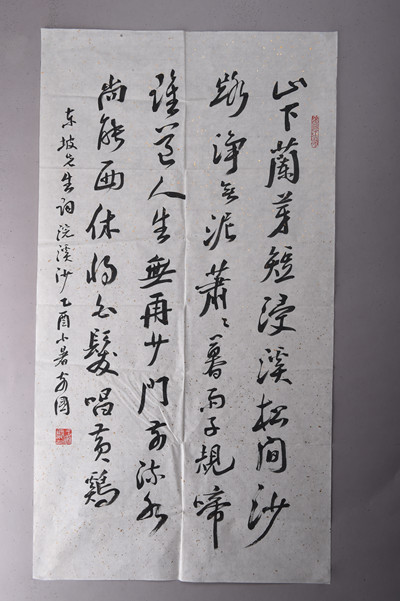 山下蘭芽短浸溪松間沙
路淨无泥蕭〻暮雨子規啼
誰道人生無再少門前流水
尚能西休將白髮唱黄鷄
東坡先生詞浣溪沙乙酉小暑國